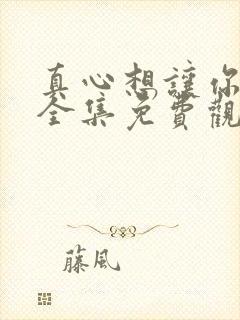 真心想讓你
全集免費觀
藤風